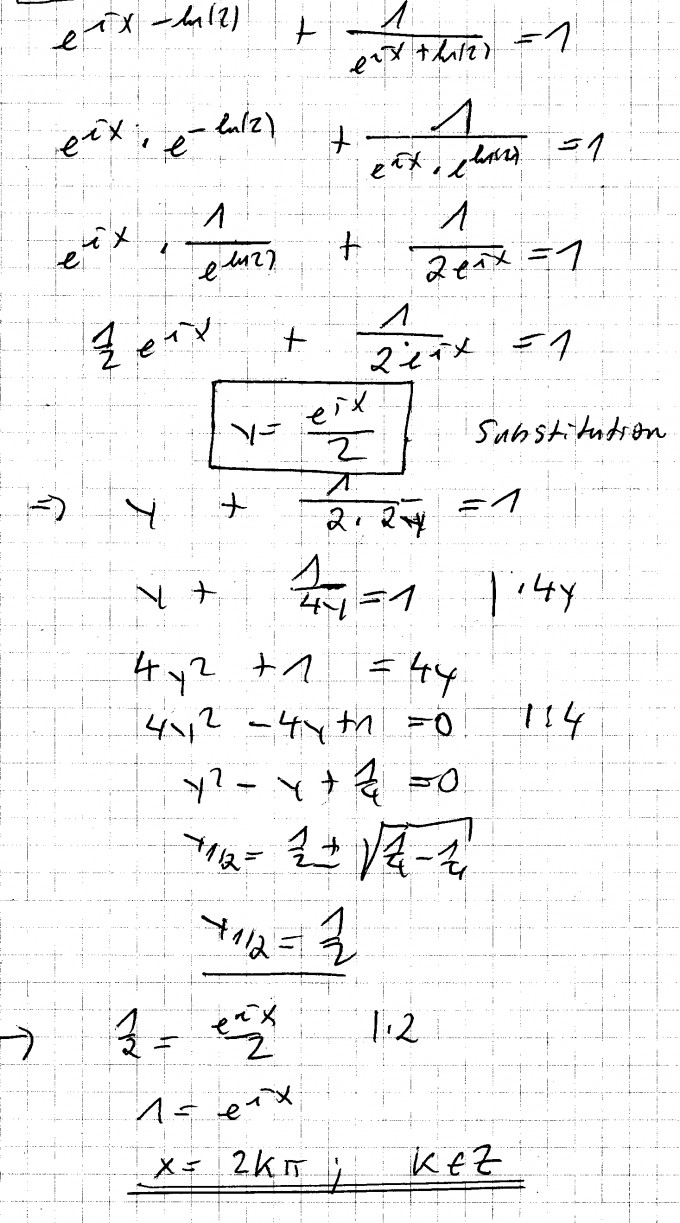 e^{ix - ln(2)} + 1/(e^{ix + ln(2)}) = 1
e^{ix} · e^{-ln(2)} + 1/(e^{ix} · e^{ln(2)}) = 1
e^{ix} · 1/(e^{ln(2)}) + 1/(2e^{ix}) = 1
1/2 e^{ix} + 1/(2·e^{ix}) = 1
y = e^{ix}/2 Substitution
⇒ y + 1/(2·2y) = 1
y + 1/(4y) = 1 | ·4y
4y² + 1 = 4y
4y² - 4y + 1 = 0 | :4
y² - y + 1/4 = 0
y_{1/2} = 1/2 ± √(1/4 - 1/4)
y_{1/2} = 1/2
→ 1/2 = e^{ix}/2 | ·2
1 = e^{ix}
x = 2kπ ; k ∈ Z